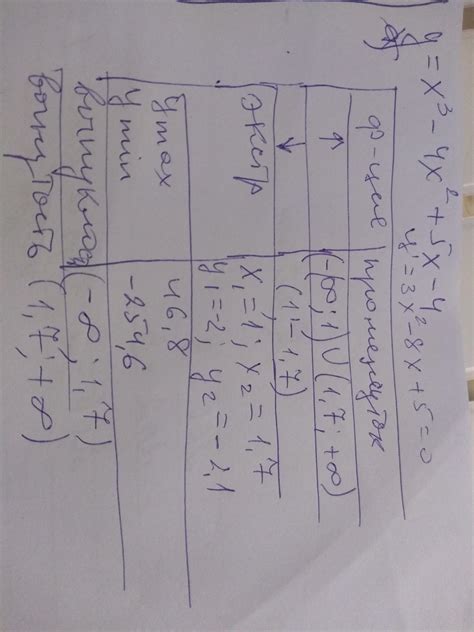 y = x³ - 4x² + 5x - 4
y' = 3x² - 8x + 5 = 0
ф-ция промежуток
↑ (-∞; 1) ∪ (1,7; +∞)
↓ (1; 1,7)
экстр x₁ = 1; x₂ = 1,7
y₁ = -2; y₂ = -2,1
y max 46,8
y min -254,6
выпуклая (-∞; 1,7)
вогнутость (1,7; +∞)